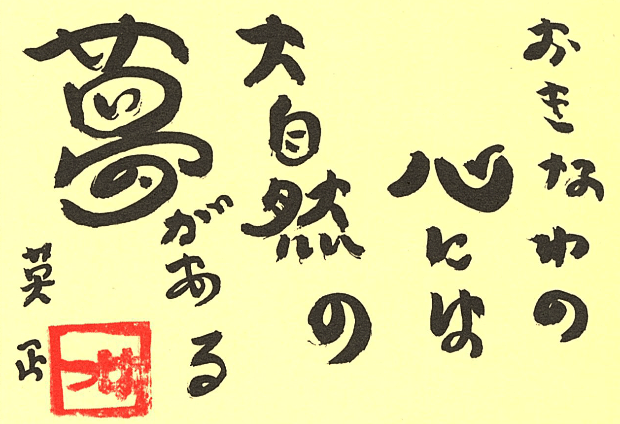 おきなわの
心には
大自然の
夢
がある
英